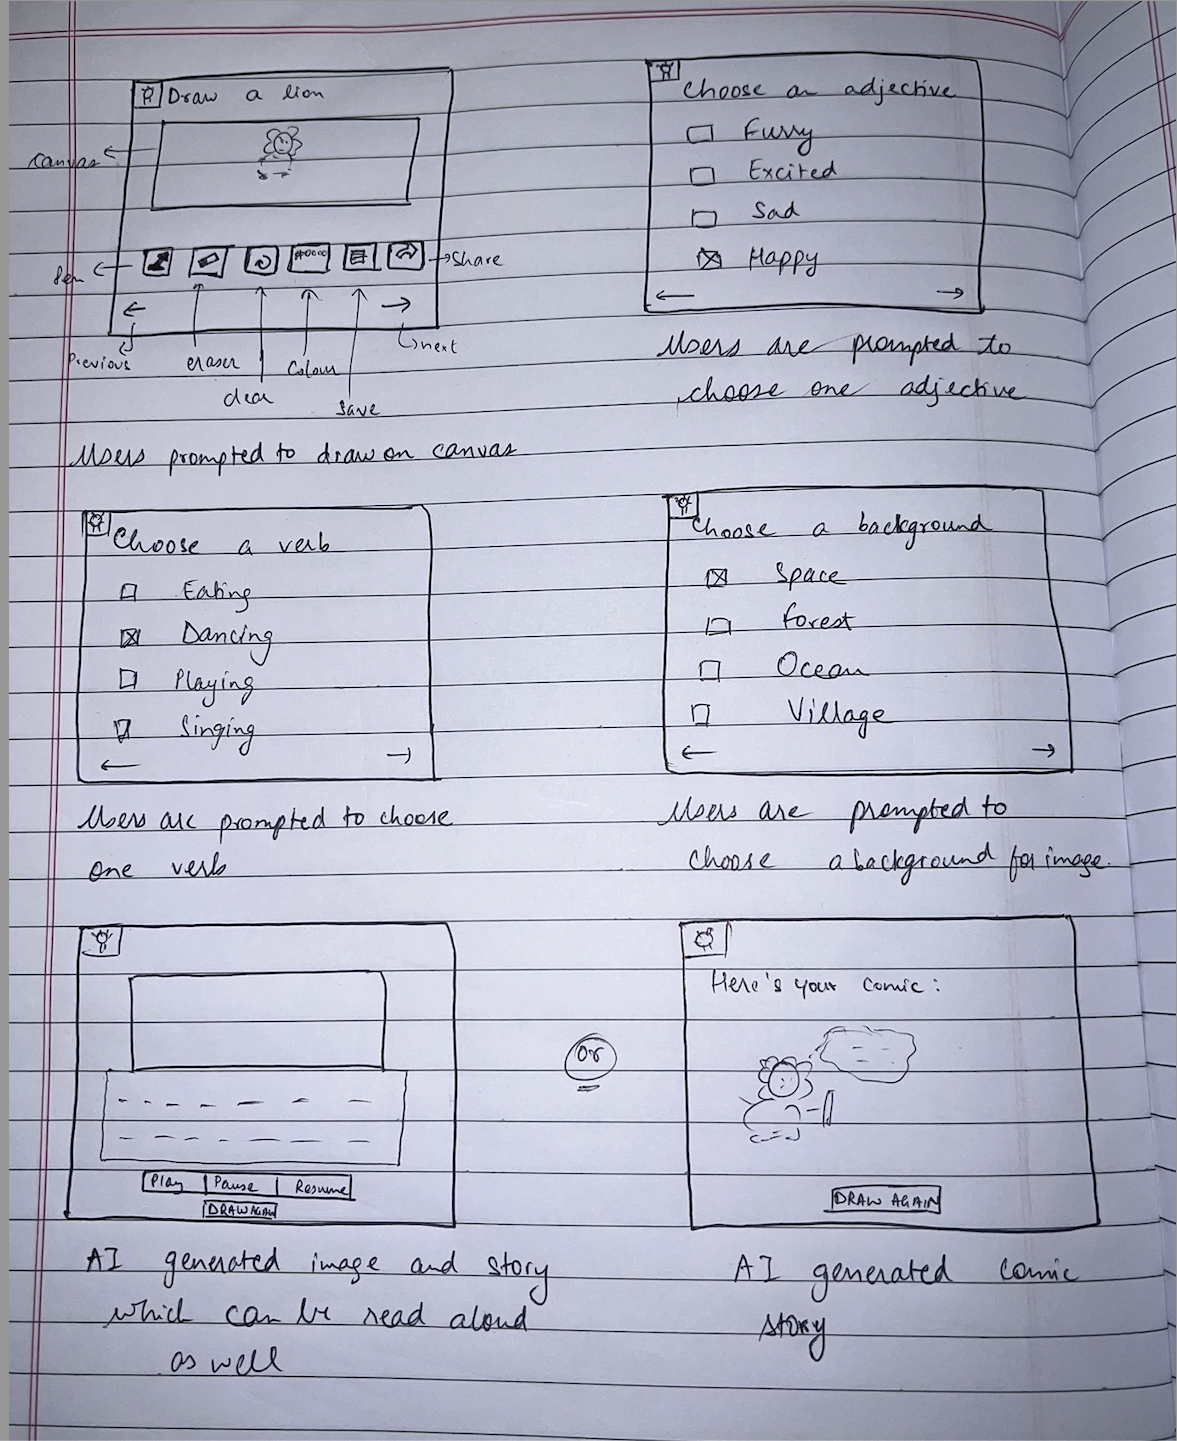 Draw a lion
Canvas
Pen
#0000
Share
Previous
eraser
clear
Colour
Save
next
Users prompted to draw on canvas
Choose an adjective
Furry
Excited
Sad
Happy
Users are prompted to
choose one adjective
Choose a verb
Eating
Dancing
Playing
Singing
Users are prompted to choose
one verb
Choose a background
Space
Forest
Ocean
Village
Users are prompted to
choose a background for image.
Play Pause Resume
DRAW AGAIN
AI generated image and story
which can be read aloud
as well
Or
Here's your comic:
DRAW AGAIN
AI generated comic
story